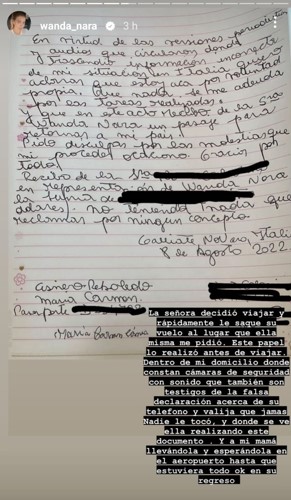 wanda_nara 3 h
En virtud de las versiones periodísticas
y audios que circularon donde
información incorrecta
de mi situación en Italia quiero
aclarar que estoy acá por voluntad
propia. Que nada se me adeuda
por las tareas realizadas.
y que en este acto Recibo de la Sra
Nora un pasaje para
retornar a mi país.
Pido disculpas por las molestias que
mi proceder ocaciono. Gracias por
todo.
Recibo de la Sra
en representación de Wanda Nora
la suma de
dolares). No teniendo nada que
reclamar por ningun concepto.
Galliate Novara, Itali
8 de Agosto 2022
Cisnero Rebolledo
Maria Carmen.
Pasaporte
Maria Carmen Cisnero
La señora decidió viajar y
rápidamente le saque su
vuelo al lugar que ella
misma me pidió. Este papel
lo realizó antes de viajar.
Dentro de mi domicilio donde
constan cámaras de seguridad
con sonido que también son
testigos de la falsa
declaración acerca de su
telefono y valija que jamas
Nadie le tocó, y donde se ve
ella realizando este
documento . Y a mi mamá
llevándola y esperándola en
el aeropuerto hasta que
estuviera todo ok en su
regreso